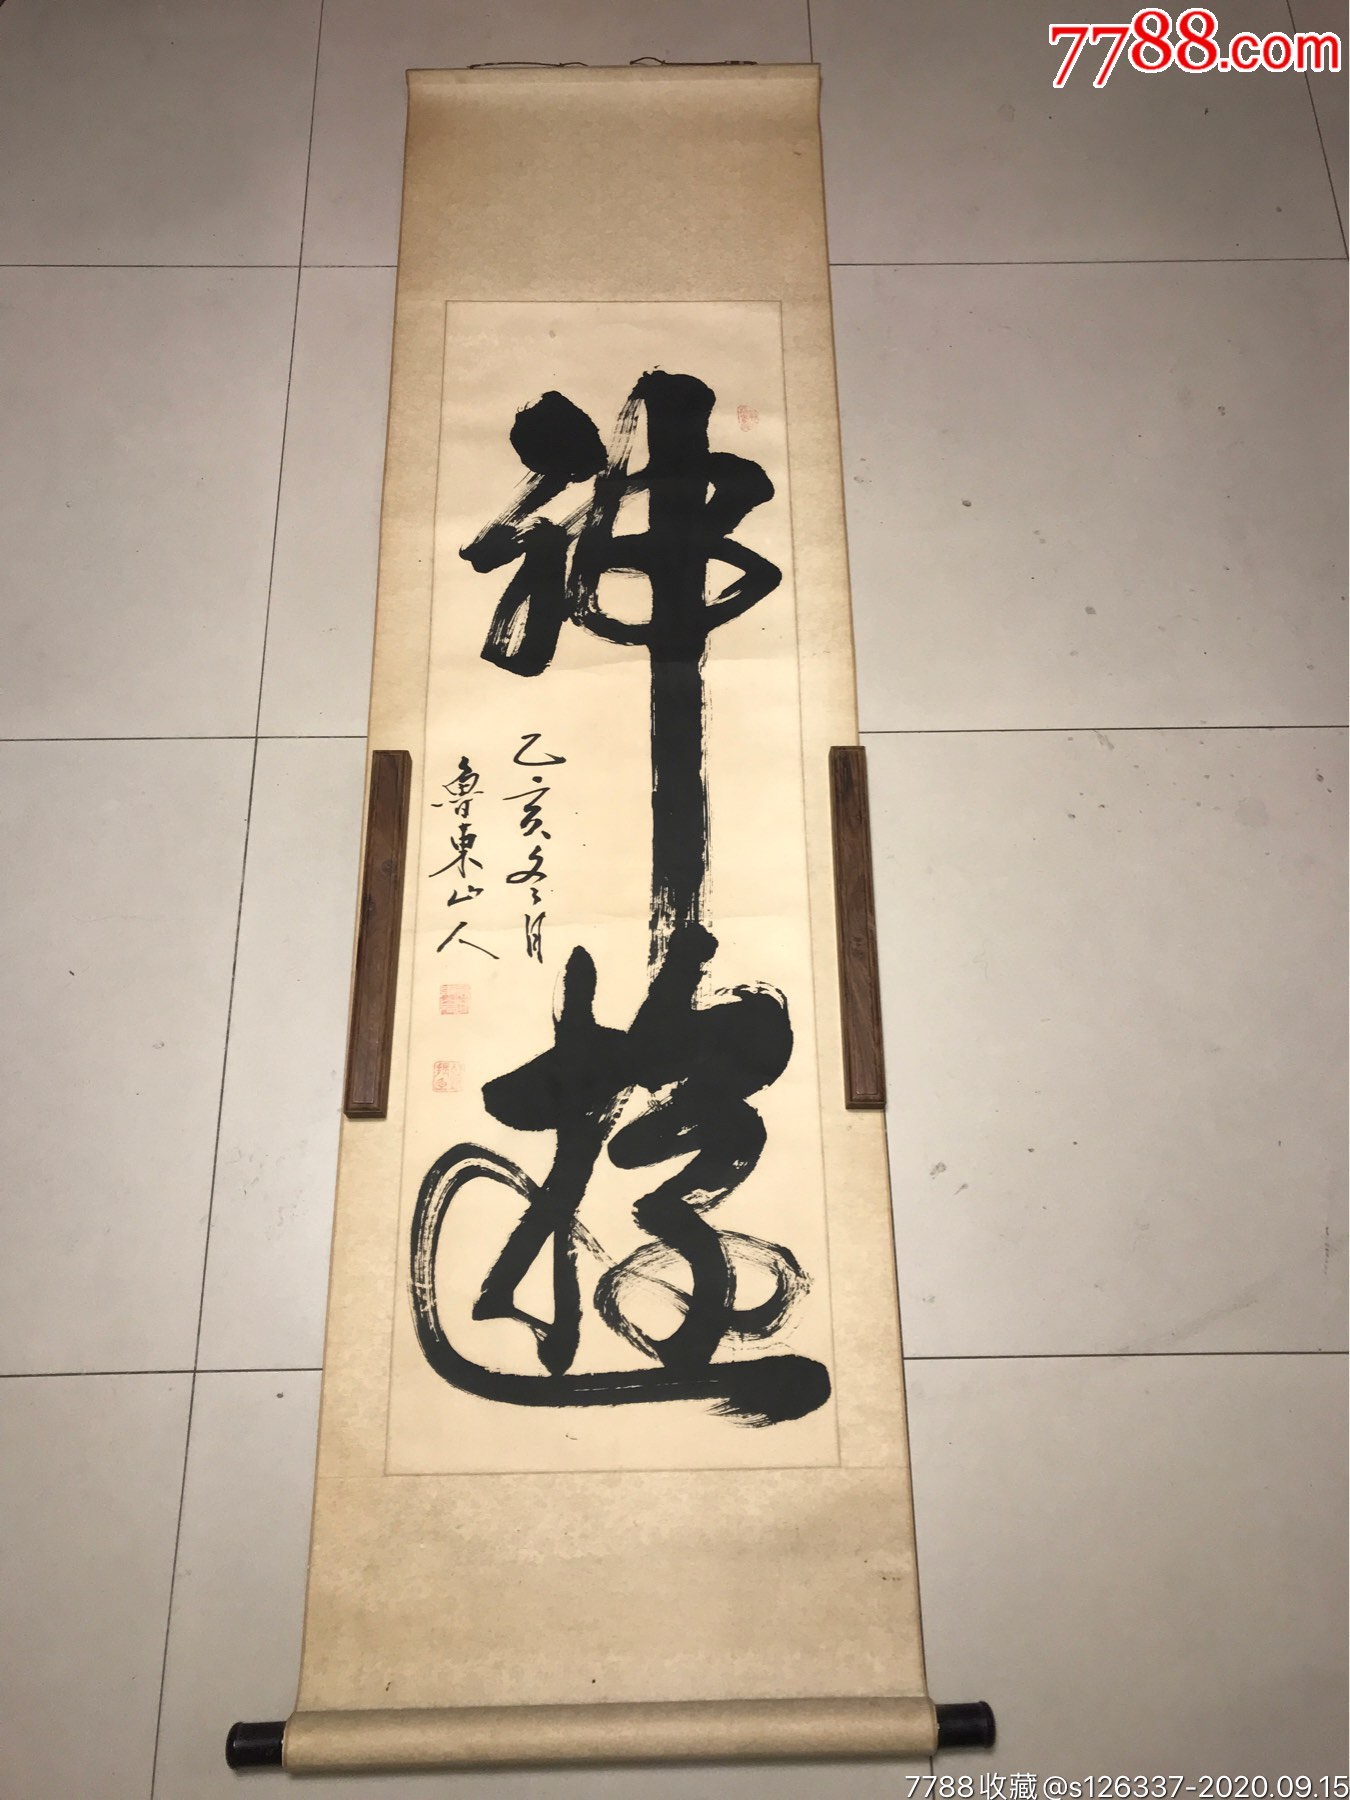 7788.com
神遊
乙亥冬月
魯東山人
7788收藏@s126337-2020.09.15